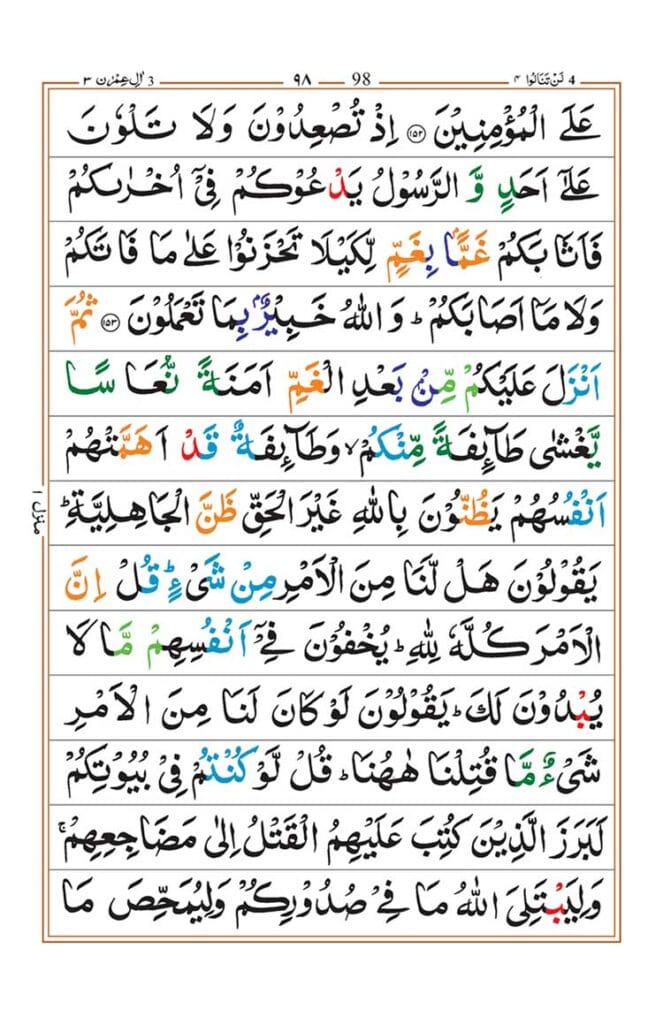 4 لَنْ تَنَالُوا ۴ 98 ۹۸ 3 اٰلِ عِمْرٰن ۳
عَلَى الْمُؤْمِنِيْنَ ۝۱۵۲ اِذْ تُصْعِدُوْنَ وَلَا تَلْوٗنَ
عَلٰٓى اَحَدٍ وَّ الرَّسُوْلُ يَدْعُوْكُمْ فِيْٓ اُخْرٰىكُمْ
فَاَثَابَكُمْ غَمًّاۢ بِغَمٍّ لِّكَيْلَا تَحْزَنُوْا عَلٰى مَا فَاتَكُمْ
وَلَا مَاۤ اَصَابَكُمْ ؕ وَ اللّٰهُ خَبِيْرٌۢ بِمَا تَعْمَلُوْنَ ۝۱۵۳ ثُمَّ
اَنْزَلَ عَلَيْكُمْ مِّنْۢ بَعْدِ الْغَمِّ اَمَنَةً نُّعَاسًا
يَّغْشٰى طَآئِفَةً مِّنْكُمْ ۙ وَطَآئِفَةٌ قَدْ اَهَمَّتْهُمْ
اَنْفُسُهُمْ يَظُنُّوْنَ بِاللّٰهِ غَيْرَ الْحَقِّ ظَنَّ الْجَاهِلِيَّةِ ؕ
يَقُوْلُوْنَ هَلْ لَّنَا مِنَ الْاَمْرِ مِنْ شَيْءٍ ؕ قُلْ اِنَّ
الْاَمْرَ كُلَّهٗ لِلّٰهِ ؕ يُخْفُوْنَ فِيْٓ اَنْفُسِهِمْ مَّا لَا
يُبْدُوْنَ لَكَ ؕ يَقُوْلُوْنَ لَوْ كَانَ لَنَا مِنَ الْاَمْرِ
شَيْءٌ مَّا قُتِلْنَا هٰهُنَا ؕ قُلْ لَّوْ كُنْتُمْ فِيْ بُيُوْتِكُمْ
لَبَرَزَ الَّذِيْنَ كُتِبَ عَلَيْهِمُ الْقَتْلُ اِلٰى مَضَاجِعِهِمْ ۚ
وَلِيَبْتَلِيَ اللّٰهُ مَا فِيْ صُدُوْرِكُمْ وَلِيُمَحِّصَ مَا
منزل ۱